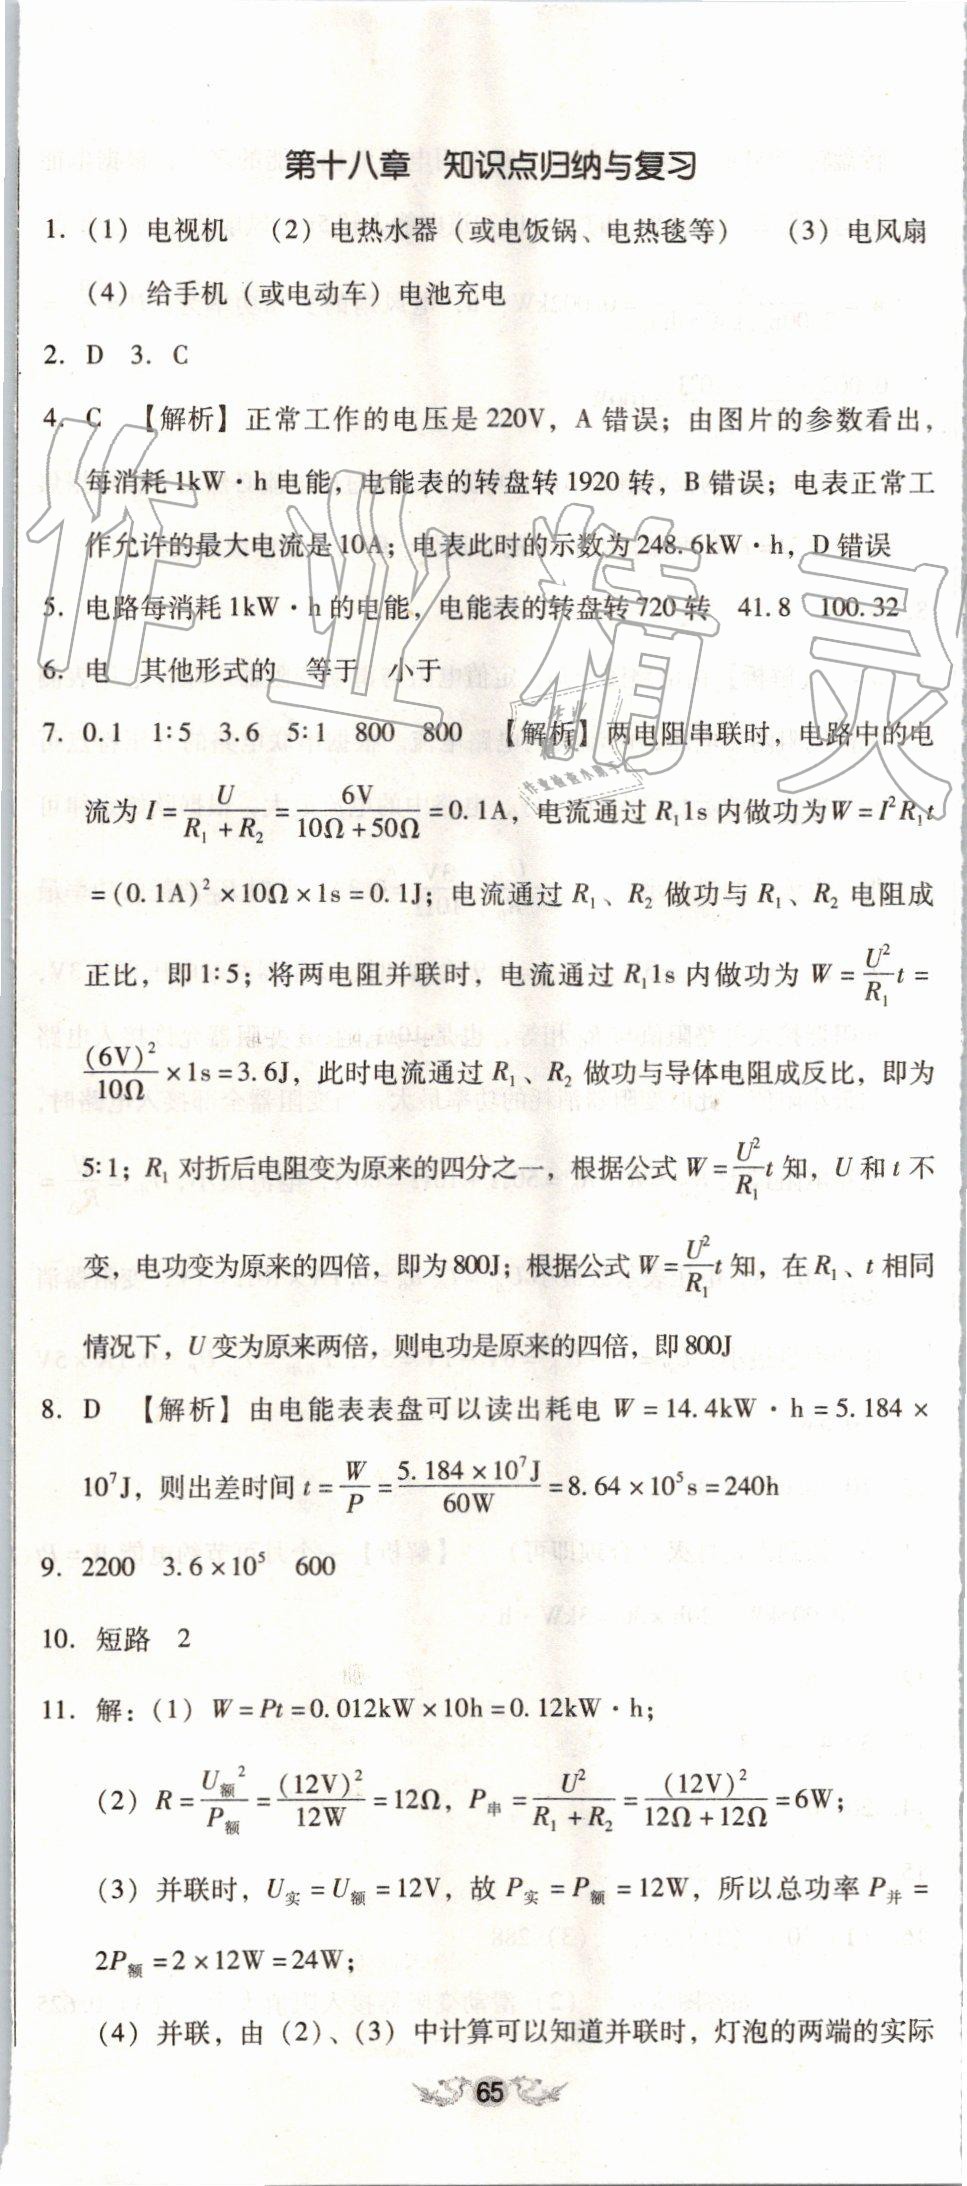 第十八章 知识点归纳与复习
1. (1) 电视机 (2) 电热水器(或电饭锅、电热毯等) (3) 电风扇
(4) 给手机(或电动车)电池充电
2. D 3. C
4. C 【解析】正常工作的电压是220V,A错误;由图片的参数看出,
每消耗1kW·h电能,电能表的转盘转1920转,B错误;电表正常工
作允许的最大电流是10A;电表此时的示数为248.6kW·h,D错误
5. 电路每消耗1kW·h的电能,电能表的转盘转720转 41.8 100.32
6. 电 其他形式的 等于 小于
7. 0.1 1∶5 3.6 5∶1 800 800 【解析】两电阻串联时,电路中的电
流为I=U/(R₁+R₂)=6V/(10Ω+50Ω)=0.1A,电流通过R₁1s内做功为W=I²R₁t
=(0.1A)²×10Ω×1s=0.1J;电流通过R₁、R₂做功与R₁、R₂电阻成
正比,即1∶5;将两电阻并联时,电流通过R₁1s内做功为W=U²/R₁t=
(6V)²/10Ω×1s=3.6J,此时电流通过R₁、R₂做功与导体电阻成反比,即为
5∶1;R₁对折后电阻变为原来的四分之一,根据公式W=U²/R₁t知,U和t不
变,电功变为原来的四倍,即为800J;根据公式W=U²/R₁t知,在R₁、t相同
情况下,U变为原来两倍,则电功是原来的四倍,即800J
8. D 【解析】由电能表表盘可以读出耗电W=14.4kW·h=5.184×
10⁷J,则出差时间t=W/P=5.184×10⁷J/60W=8.64×10⁵s=240h
9. 2200 3.6×10⁵ 600
10. 短路 2
11. 解:(1) W=Pt=0.012kW×10h=0.12kW·h;
(2) R=U额²/P额=(12V)²/12W=12Ω,P串=U²/(R₁+R₂)=(12V)²/(12Ω+12Ω)=6W;
(3) 并联时,U实=U额=12V,故P实=P额=12W,所以总功率P并=
2P额=2×12W=24W;
(4) 并联,由(2)、(3)中计算可以知道并联时,灯泡的两端的实际
65
作业精灵